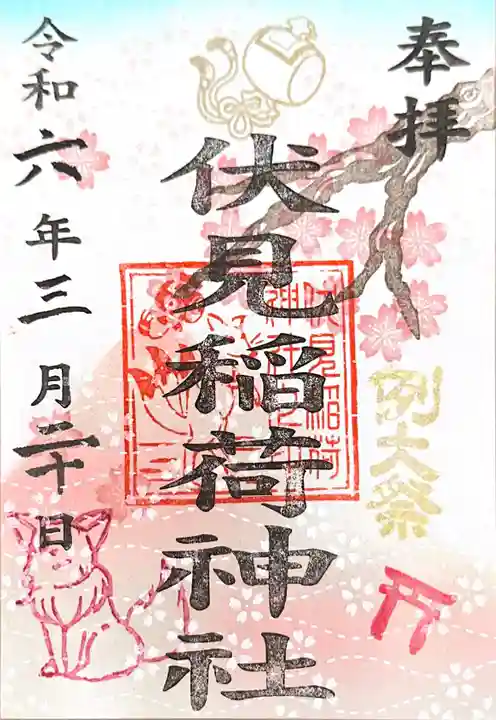 奉拝
例大祭
伏見稲荷神社
伏見稲荷
令和六年三月二十日